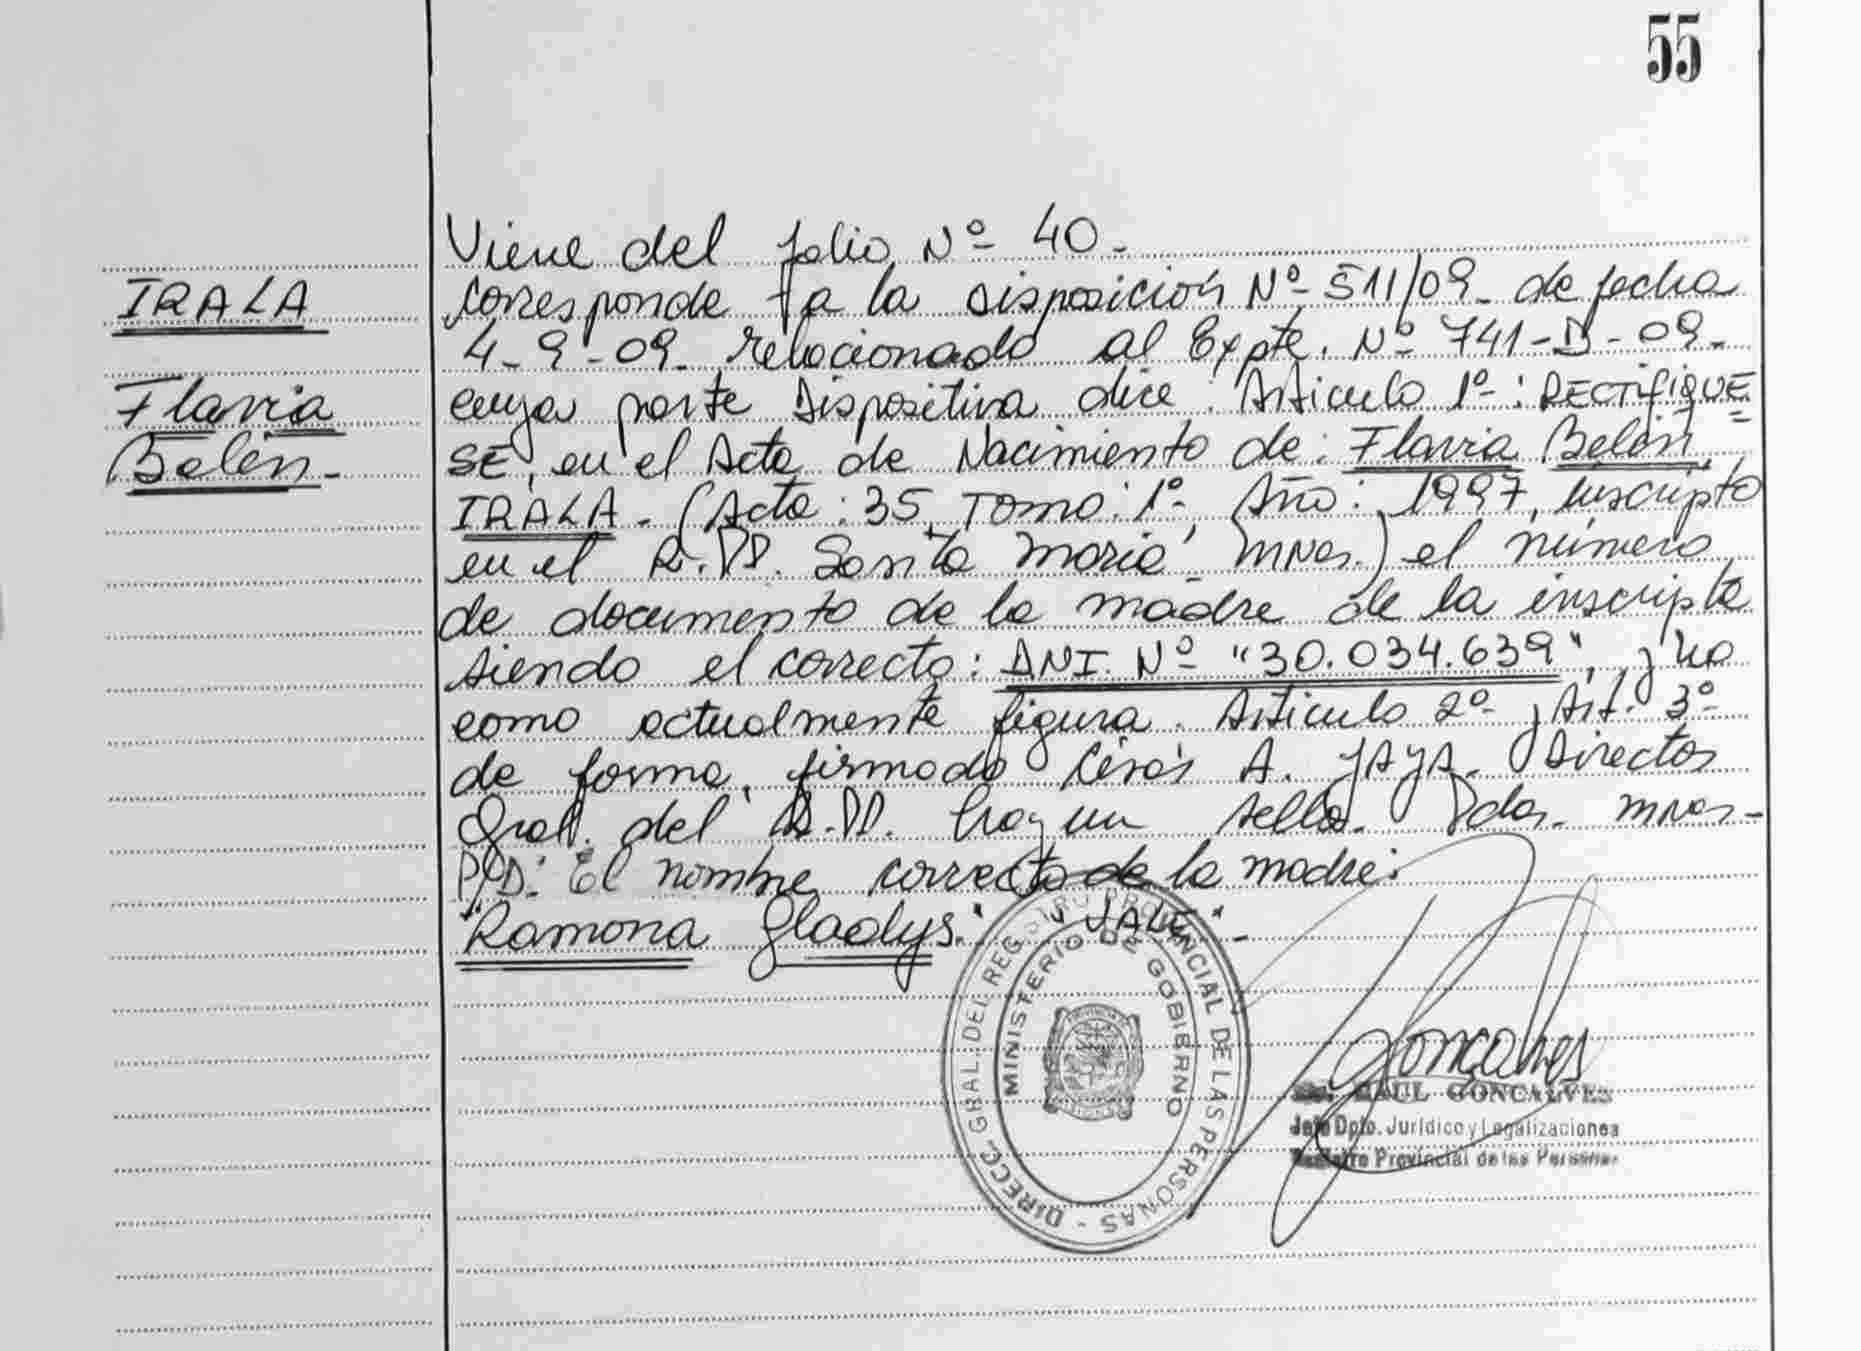 55
IRALA
Flavia
Belén-
Viene del folio Nº 40-
Corresponde a la disposición Nº 511/09- de fecha
4-9-09- relacionado al Expte. Nº 741-D-09-
cuya parte Dispositiva dice: Artículo 1º-: RECTIFIQUE=
SE, en el Acta de Nacimiento de: Flavia Belén
IRALA- (Acta: 35, Tomo: 1º, Año: 1997, inscripto
en el R.PP. Santa María, Mnes.) el número
de documento de la madre de la inscripta
siendo el correcto: DNI. Nº "30.034.639", y no
como actualmente figura. Artículo 2º y Art. 3º
de forma, firmado A. Director
Gral. del R.PP. hay un sello. Pdas. Mnes-
P/D: El nombre correcto de la madre:
"Ramona Gladys." VALE"-
DIRECC. GRAL. DEL REGISTRO PROVINCIAL DE LAS PERSONAS -
MINISTERIO DE GOBIERNO
Goncalves
RAUL GONCALVES
Jefe Dpto. Jurídico y Legalizaciones
Registro Provincial de las Personas